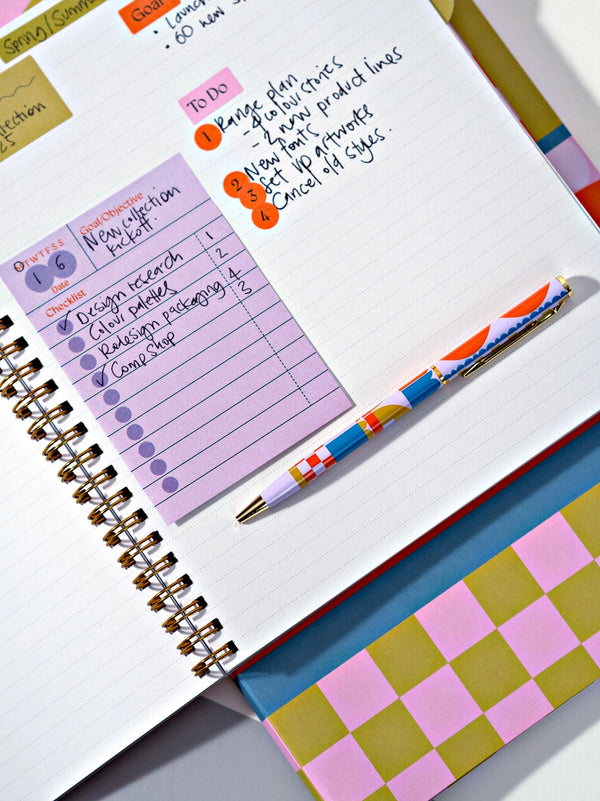 Spring/Summ
Goal
• Launc
• 60 new s
25
To Do
1 Range plan
- 4 colour stories
- 2 new product lines
2 New fonts
3 Set up artworks
4 Cancel old styles.
Goal/Objective
New collection
kickoff.
MTWTFSS
16
Date
Checklist
Design research 1
Colour palettes 2
Redesign packaging 4
Comp shop 3